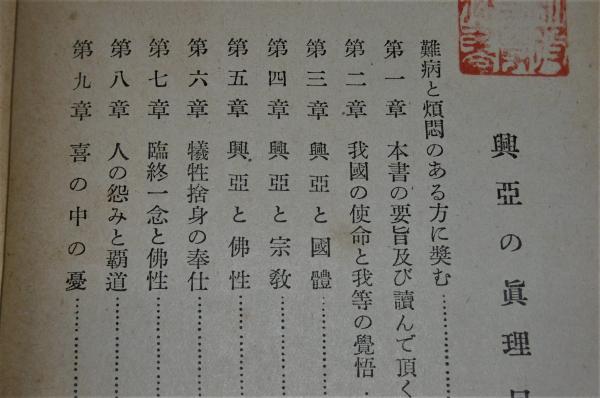 興亞の眞理
難病と煩悶のある方に奬む
第一章 本書の要旨及び讀んで頂く
第二章 我國の使命と我等の覺悟
第三章 興亞と國體
第四章 興亞と宗敎
第五章 興亞と佛性
第六章 犠牲捨身の奉仕
第七章 臨終一念と佛性
第八章 人の怨みと覇道
第九章 喜の中の憂